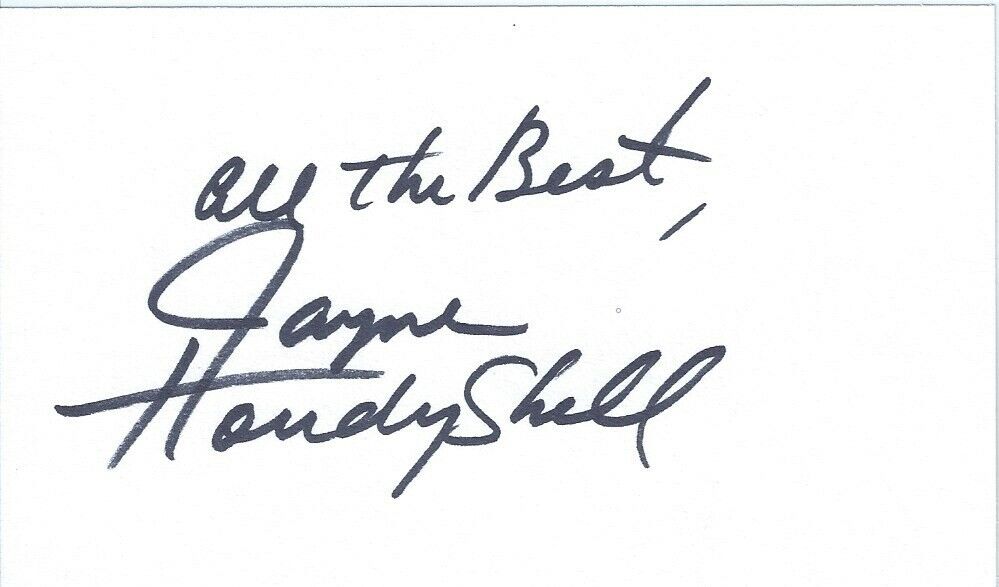 All the Best,
Jayne
HoudyShell